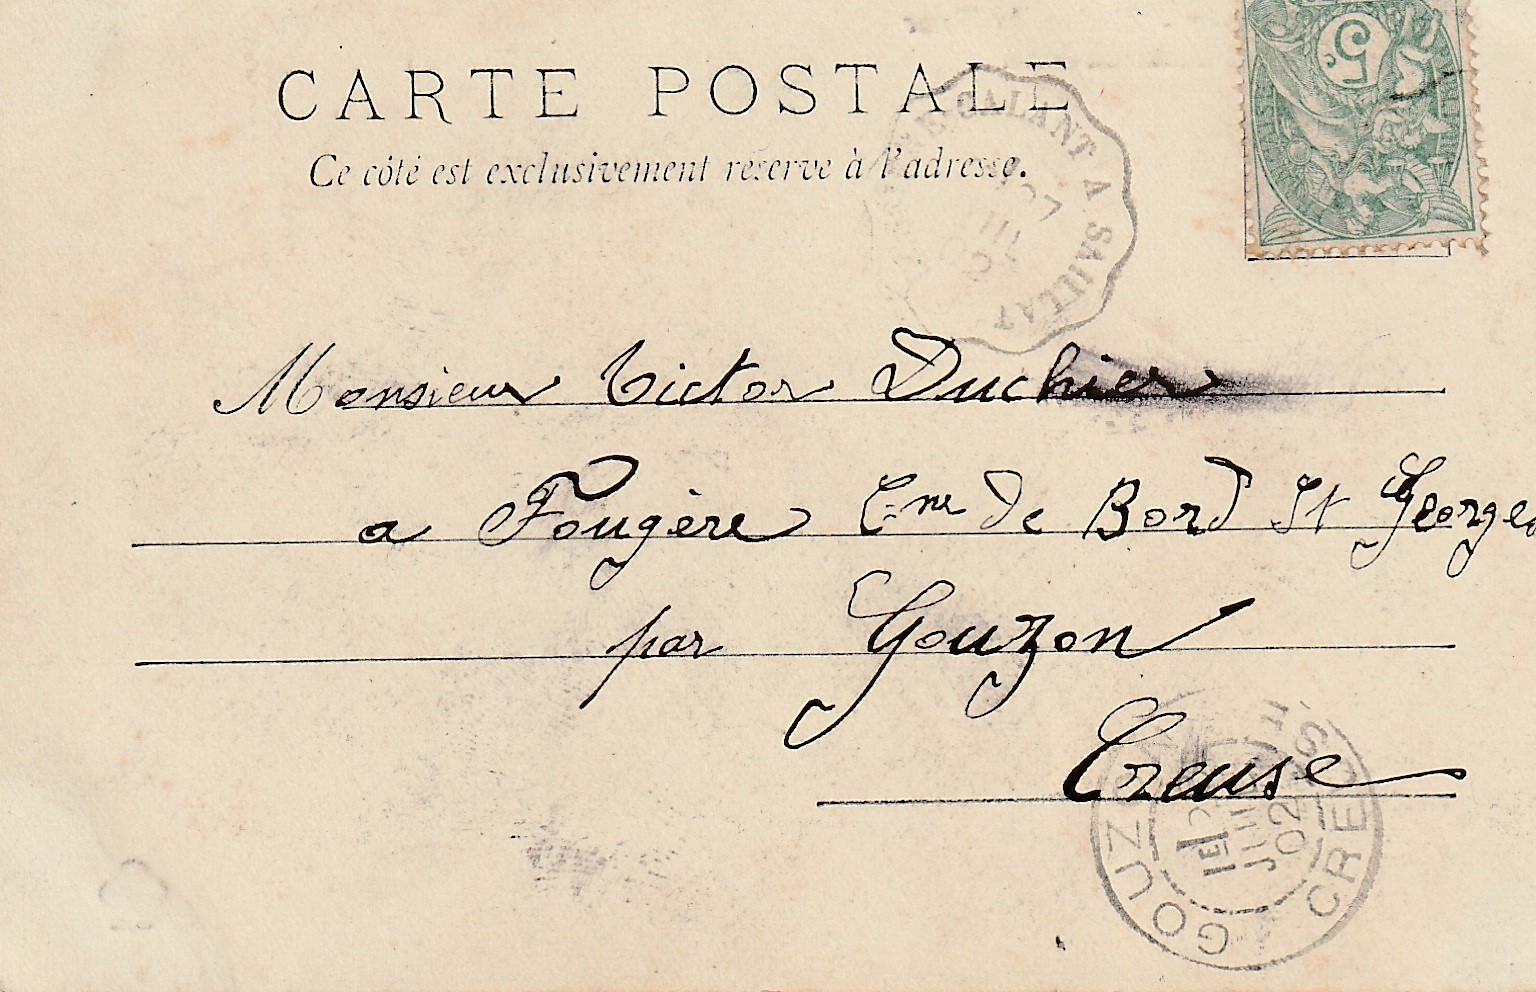 CARTE POSTALE
Ce côté est exclusivement réservé à l'adresse.
5
GALANT A SAILLAT
Monsieur Victor Duchier
a Fougère Cne de Bord St Georges
par Gouzon
Creuse
GOUZON CREUSE
1E
JUIL
02